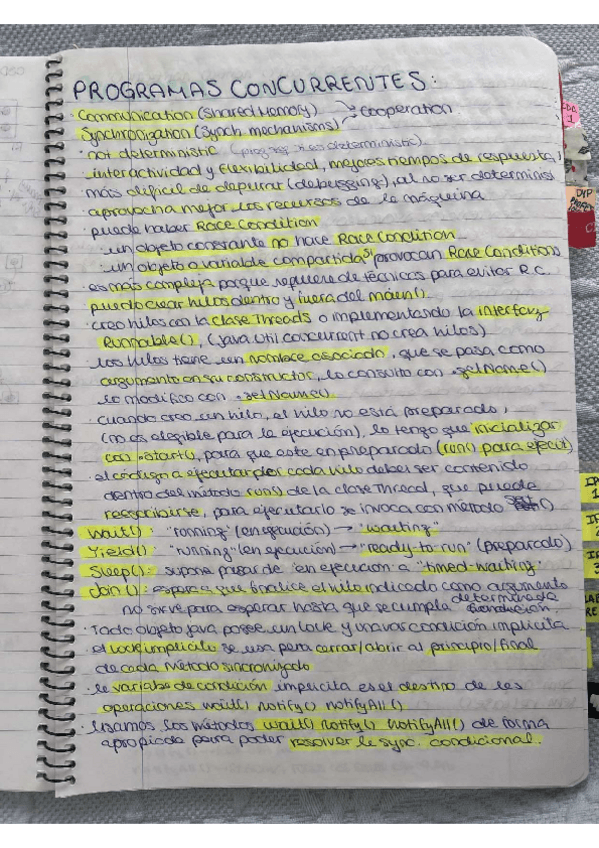 PROGRAMAS CONCURRENTES:
· Communication (Shared Memory) → Cooperation
Synchronization (Synch mechanisms)
· not deterministic (progr. sí es deterministic)
· interactividad y flexibilidad, mejores tiempos de respuesta,
más difícil de depurar (debugging), al no ser determinist
· aprovecha mejor los recursos de la máquina
· puede haber Race Condition
· un objeto constante no hace Race Condition
· un objeto o variable compartida sí provocan Race Conditions
· es más compleja porque requiere de técnicas para evitar R.C.
· puedo crear hilos dentro y fuera del main().
· creo hilos con la clase Threads o implementando la interfaz
Runnable(), (java.util.concurrent no crea hilos)
· los hilos tiene un nombre asociado, que se pasa como
argumento en su constructor, lo consulto con .getName()
lo modifico con .setName()
· cuando creo un hilo, el hilo no está preparado,
(no es elegible para la ejecución), lo tengo que inicializar
con .start(), para que este en preparado (run() para ejecut)
· el código a ejecutar por cada hilo debe ser contenido
dentro del método run() de la clase Thread, que puede
reescribirse, para ejecutarlo se invoca con método
Wait(): "running" (en ejecución) → "waiting"
Yield(): "running" (en ejecución) → "ready-to-run" (preparado)
Sleep(): supone pasar de en ejecución a "timed-waiting"
Join(): espera a que finalice el hilo indicado como argumento
no sirve para esperar hasta que se cumpla determinada condición.
· Todo objeto java posee un lock y una var condición implícita
· el lock implícito se usa para cerrar/abrir al principio/final
de cada método sincronizado
· la variable de condición implícita es el destino de las
operaciones wait() notify() notifyAll()
· Usamos los métodos wait() notify() notifyAll() de forma
apropiada para poder resolver la sync. condicional.
DYP